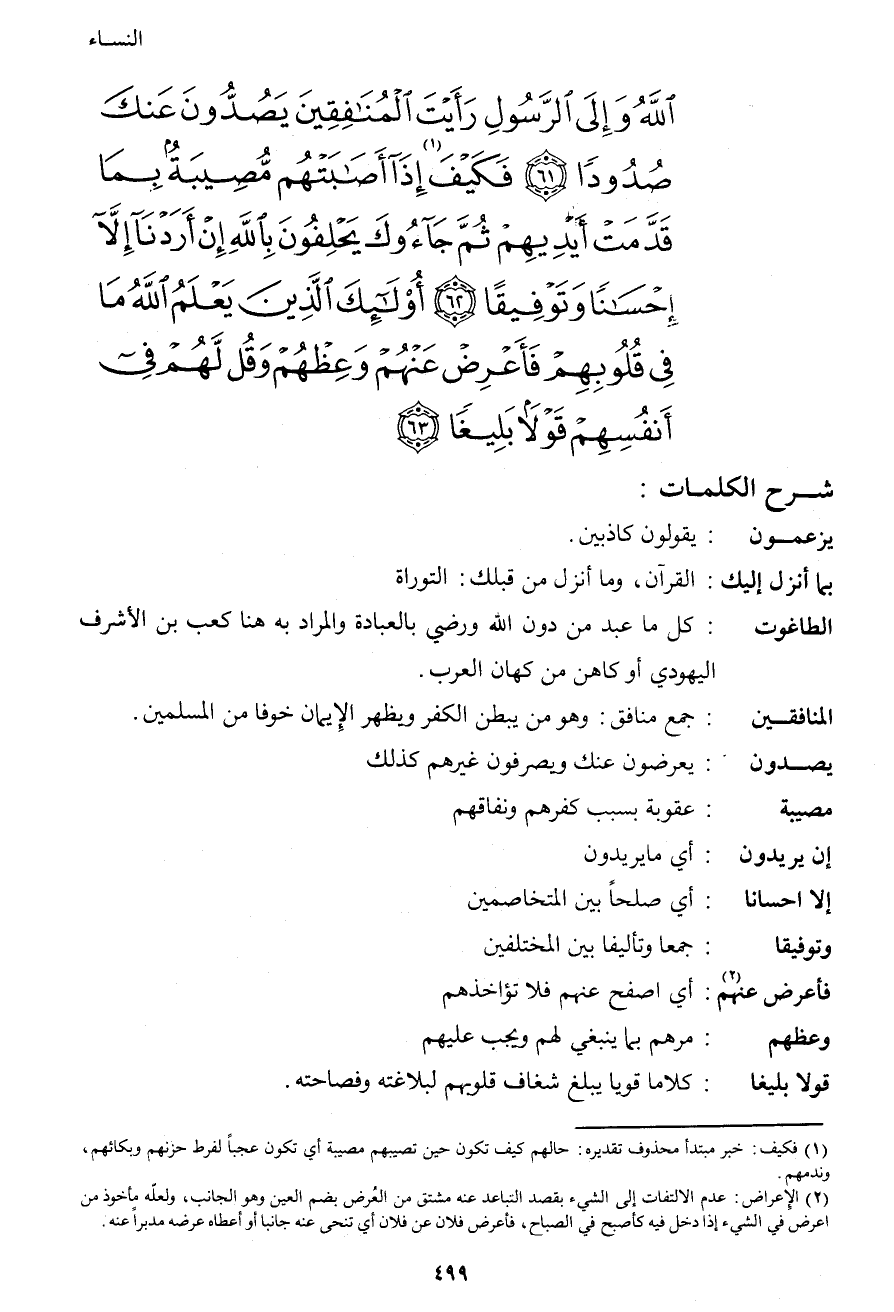 النساء
ٱللَّهُ وَإِلَى ٱلرَّسُولِ رَأَيْتَ ٱلْمُنَٰفِقِينَ يَصُدُّونَ عَنكَ
صُدُودًا ﴿٦١﴾ فَكَيْفَ (١) إِذَآ أَصَٰبَتْهُم مُّصِيبَةٌۢ بِمَا
قَدَّمَتْ أَيْدِيهِمْ ثُمَّ جَآءُوكَ يَحْلِفُونَ بِٱللَّهِ إِنْ أَرَدْنَآ إِلَّآ
إِحْسَٰنًا وَتَوْفِيقًا ﴿٦٢﴾ أُوْلَٰٓئِكَ ٱلَّذِينَ يَعْلَمُ ٱللَّهُ مَا
فِى قُلُوبِهِمْ فَأَعْرِضْ عَنْهُمْ وَعِظْهُمْ وَقُل لَّهُمْ فِىٓ
أَنفُسِهِمْ قَوْلًۢا بَلِيغًا ﴿٦٣﴾
شرح الكلمات :
يزعمون : يقولون كاذبين.
بما أنزل إليك : القرآن، وما أنزل من قبلك : التوراة
الطاغوت : كل ما عبد من دون الله ورضي بالعبادة والمراد به هنا كعب بن الأشرف
اليهودي أو كاهن من كهان العرب.
المنافقين : جمع منافق : وهو من يبطن الكفر ويظهر الإيمان خوفا من المسلمين.
يصدون : يعرضون عنك ويصرفون غيرهم كذلك
مصيبة : عقوبة بسبب كفرهم ونفاقهم
إن يريدون : أي مايريدون
إلا احسانا : أي صلحاً بين المتخاصمين
وتوفيقا : جمعا وتأليفا بين المختلفين
فأعرض عنهم (٢) : أي اصفح عنهم فلا تؤاخذهم
وعظهم : مرهم بما ينبغي لهم ويجب عليهم
قولا بليغا : كلاما قويا يبلغ شغاف قلوبهم لبلاغته وفصاحته.
(١) فكيف : خبر مبتدأ محذوف تقديره : حالهم كيف تكون حين تصيبهم مصيبة أي تكون عجباً لفرط حزنهم وبكائهم،
وندمهم.
(٢) الإعراض : عدم الالتفات إلى الشيء بقصد التباعد عنه مشتق من العُرض بضم العين وهو الجانب، ولعلّه مأخوذ من
اعرض في الشيء إذا دخل فيه كأصبح في الصباح، فأعرض فلان عن فلان أي تنحى عنه جانبا أو أعطاه عرضه مدبراً عنه.
٤٩٩